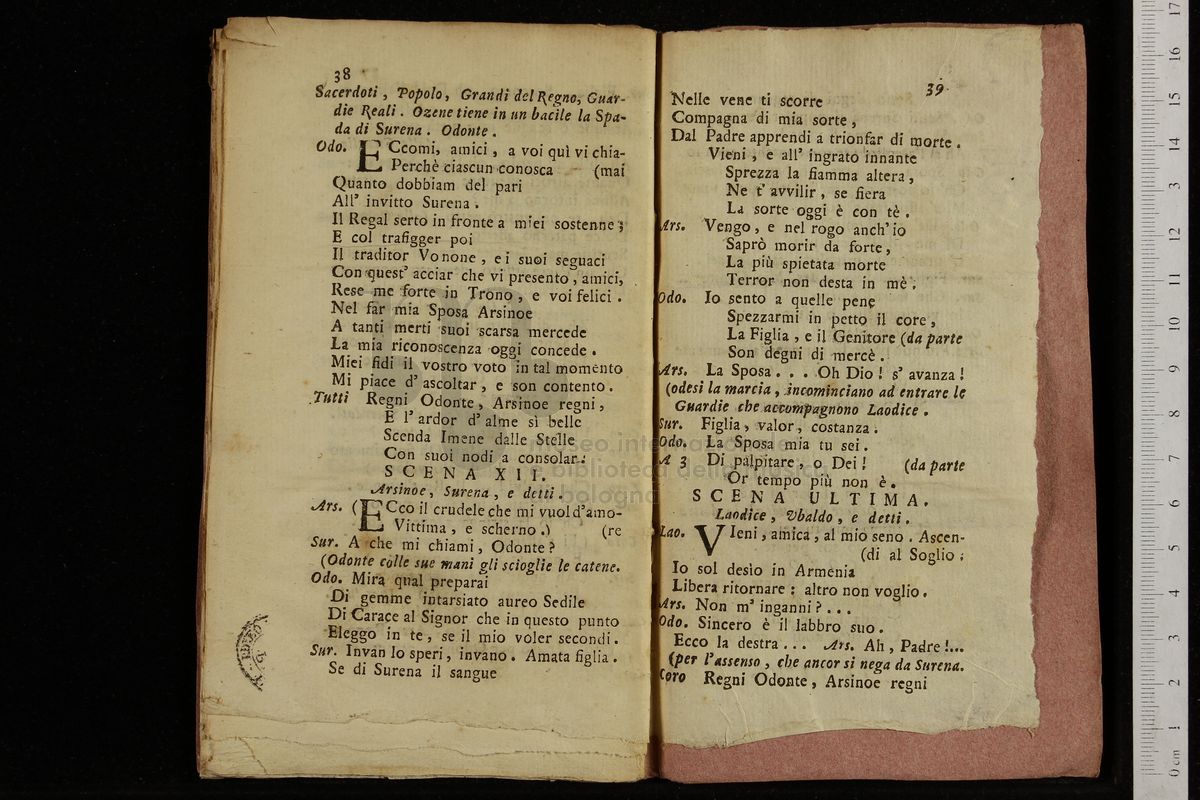 38
Sacerdoti, Popolo, Grandi del Regno, Guar-
die Reali. Ozene tiene in un bacile la Spa-
da di Surena. Odonte.
Odo. ECcomi, amici, a voi quì vi chia-
Perchè ciascun conosca (mai
Quanto dobbiam del pari
All' invitto Surena.
Il Regal serto in fronte a miei sostenne;
E col trafigger poi
Il traditor Vonone, e i suoi seguaci
Con quest' acciar che vi presento, amici,
Rese me forte in Trono, e voi felici.
Nel far mia Sposa Arsinoe
A tanti merti suoi scarsa mercede
La mia riconoscenza oggi concede.
Miei fidi il vostro voto in tal momento
Mi piace d' ascoltar, e son contento.
Tutti Regni Odonte, Arsinoe regni,
E l' ardor d' alme sì belle
Scenda Imene dalle Stelle
Con suoi nodi a consolar.
SCENA XII.
Arsinoe, Surena, e detti.
Ars. (ECco il crudele che mi vuol d'amo-
Vittima, e scherno.) (re
Sur. A che mi chiami, Odonte?
(Odonte colle sue mani gli scioglie le catene.
Odo. Mira qual preparai
Di gemme intarsiato aureo Sedile
Di Carace al Signor che in questo punto
Eleggo in te, se il mio voler secondi.
Sur. Invan lo speri, invano. Amata figlia.
Se di Surena il sangue
39
Nelle vene ti scorre
Compagna di mia sorte,
Dal Padre apprendi a trionfar di morte.
Vieni, e all' ingrato innante
Sprezza la fiamma altera,
Ne t' avvilir, se fiera
La sorte oggi è con tè.
Ars. Vengo, e nel rogo anch' io
Saprò morir da forte,
La più spietata morte
Terror non desta in mè.
Odo. Io sento a quelle pene
Spezzarmi in petto il core,
La Figlia, e il Genitore (da parte
Son degni di mercè.
Ars. La Sposa... Oh Dio! s' avanza!
(odesi la marcia, incominciano ad entrare le
Guardie che accompagnono Laodice.
Sur. Figlia, valor, costanza.
Odo. La Sposa mia tu sei.
A 3 Di palpitare, o Dei! (da parte
Or tempo più non è.
SCENA ULTIMA.
Laodice, Ubaldo, e detti.
Lao. VIeni, amica, al mio seno. Ascen-
(di al Soglio;
Io sol desio in Armenia
Libera ritornare: altro non voglio.
Ars. Non m' inganni?...
Odo. Sincero è il labbro suo.
Ecco la destra... Ars. Ah, Padre!...
(per l'assenso, che ancor si nega da Surena.
Coro Regni Odonte, Arsinoe regni